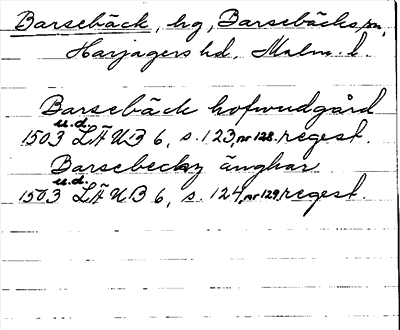 Barsebäck, hg, Barsebäcks sn,
Harjagers hd, Malm. l.
Barsebäck hofwudgård
1503 u.d. LÄUB 6, s. 123, nr 128. regest.
Barsebecky änghar
1503 u.d. LÄUB 6, s. 124, nr 129, regest.